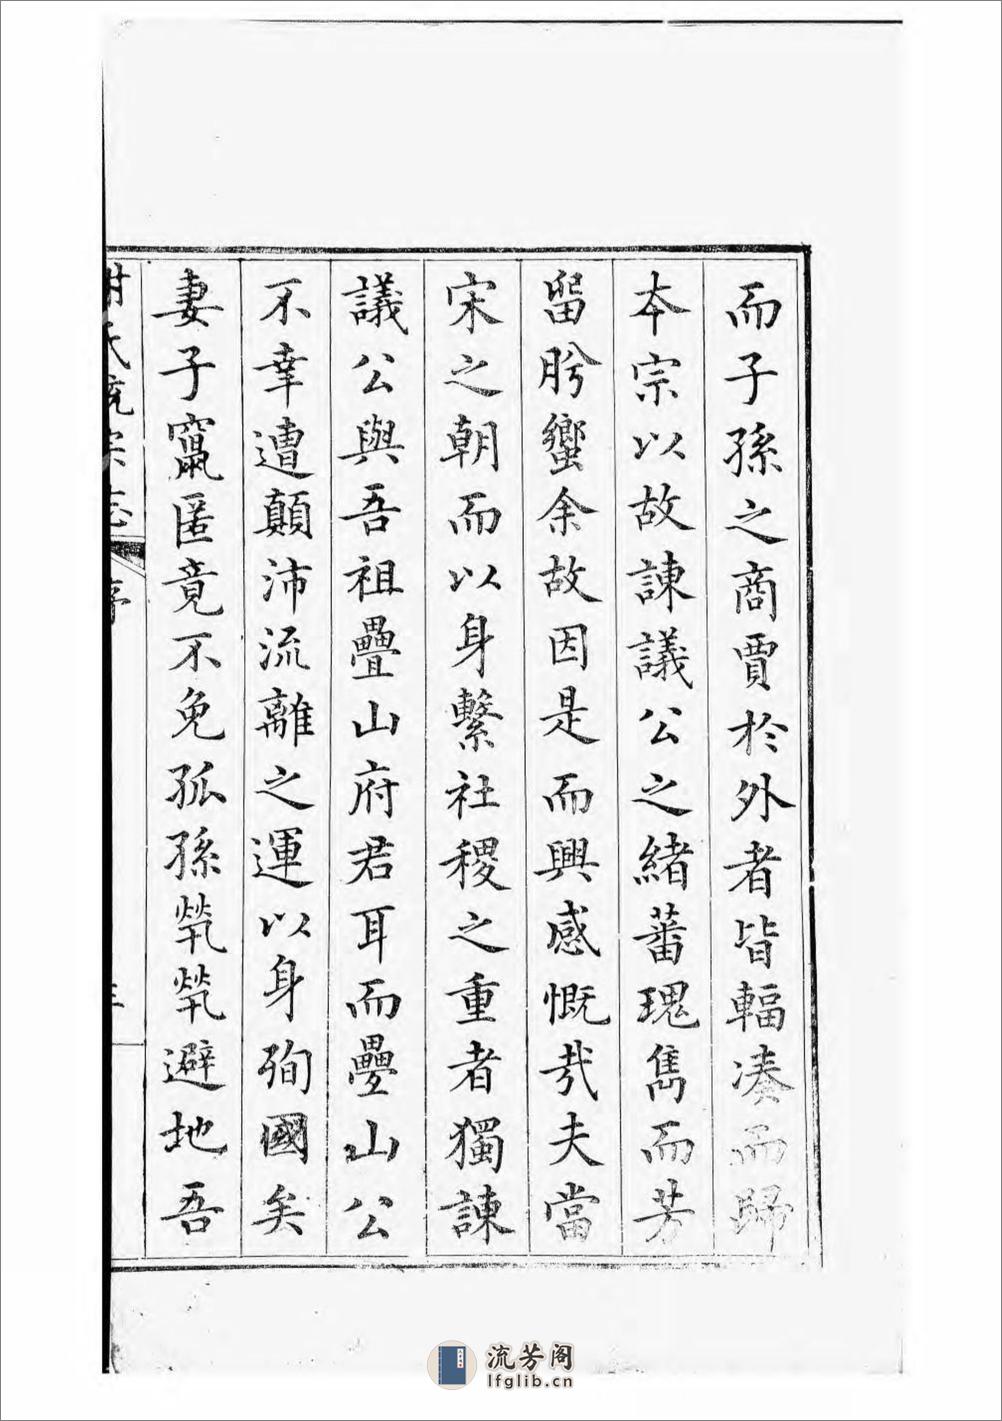 而子孫之商賈於外者皆輻凑而歸
本宗以故諫議公之緒蕃瑰雋而芳
畱肹蠁余故因是而興感慨㢤夫當
宋之朝而以身繫社稷之重者獨諫
議公與吾祖疊山府君耳而疊山公
不幸遭顛沛流離之運以身殉國矣
妻子竄匿竟不免孤孫煢煢避地吾
氏宗志
序
流芳阁
lfglib.cn